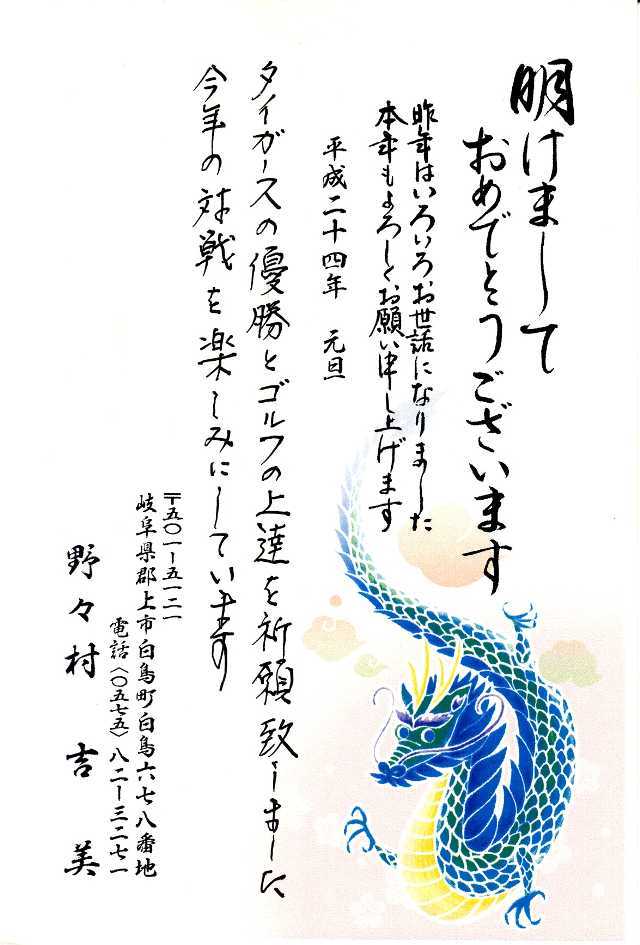 明けまして
おめでとうございます
昨年はいろいろお世話になりました
本年もよろしくお願い申し上げます
平成二十四年　元旦
タイガースの優勝とゴルフの上達を祈願致しました
今年の対戦を楽しみにしています
〒五〇一ー五一二一
岐阜県郡上市白鳥町白鳥六七八番地
電話〈〇五七五〉八二ー三二七一
野々村　吉　美